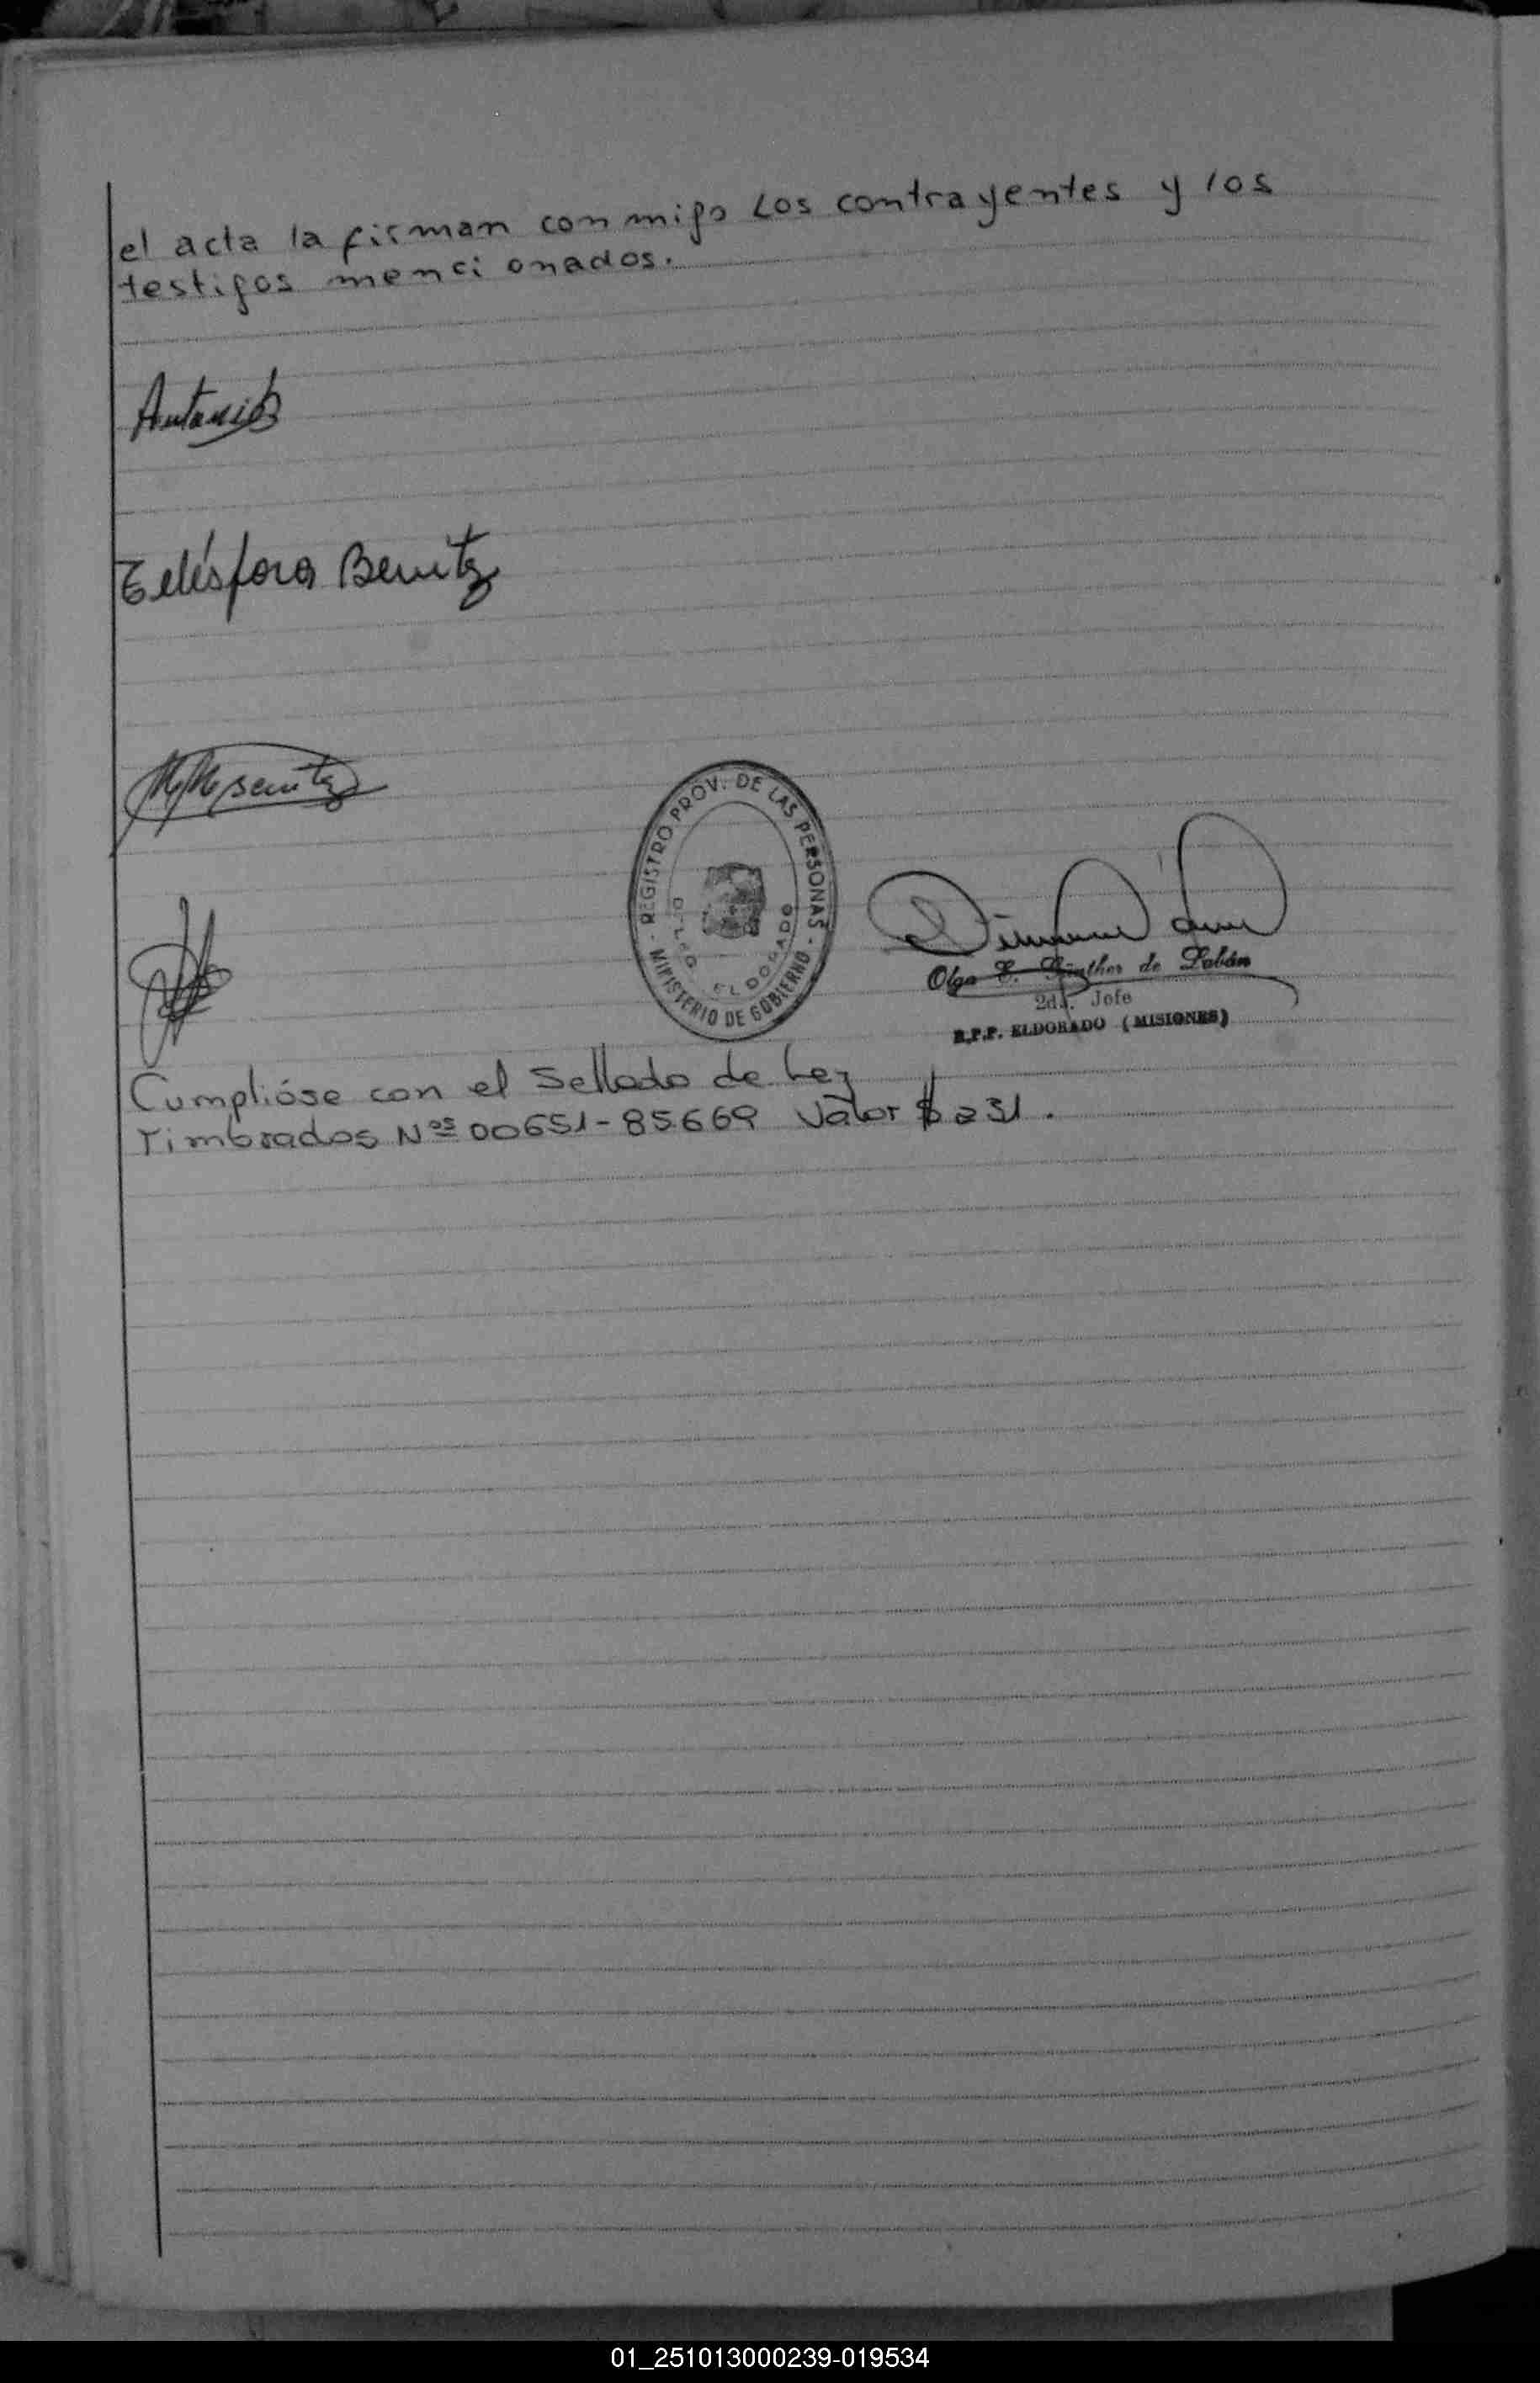 el acta la firman conmigo Los contrayentes y los
testigos mencionados.
Antonio
Telésforo Benitez
Benitez
REGISTRO PROV. DE LAS PERSONAS
- MINISTERIO DE GOBIERNO -
DELEG. ELDORADO
Olga E. Günther de Labán
2da. Jefe
R.P.P. ELDORADO (MISIONES)
Cumplióse con el Sellado de Ley
Timbrados Nºs 00651-85669 Valor $ 231.
01_251013000239-019534